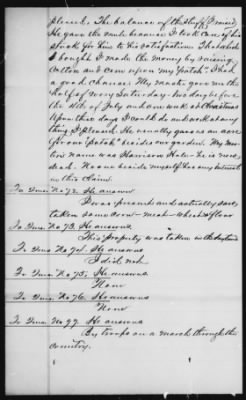 pleased. The balance of the stuff I raised
He gave the mule because I took care of his
stock for him to his satisfaction. The
I bought I made the money by raising
Cotton and corn upon my "patch". I had
a good chance. My master gave me the
half of every Saturday. two days before
the 4th of July and one week at Christmas
Upon those days I could do and work at any
thing I pleased. He usually gave us an acre
for our "patch" besides our garden. My mas
ter's name was Harrison Hale. he is now
dead. No one beside myself has any interest
in this claim.
To Ques. No 72. He answers
I was present and actually saw
taken some corn - meat - wheat & flour
To Ques. No 73. He answers
This property was taken in the daytime
To Ques. No 74. He answers
I did not.
To Ques. No 75, He answers
None
To Ques. No 76. He answers
None
To Ques. No 77. He answers
By troops on a march through the
country.